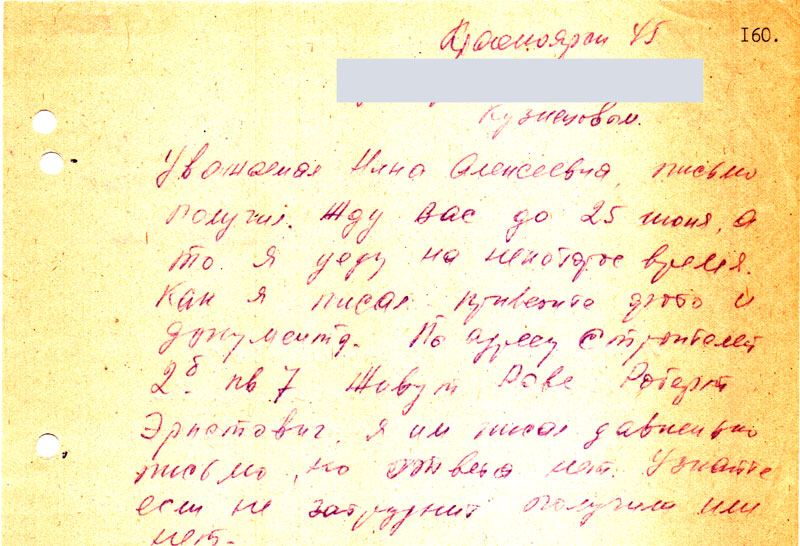 Красноярск 45
160.
Кузнецовой.
Уважаемая Нина Алексеевна, письмо
получил. Жду вас до 25 июня, а
то я уеду на некоторое время.
Как я писал привезите фото и
документы. По адресу Строителей
2б кв 7 живут Раве Роберт
Эрнстович, я им писал давненько
письмо, но ответа нет. Узнайте
если не затруднит получили или
нет.